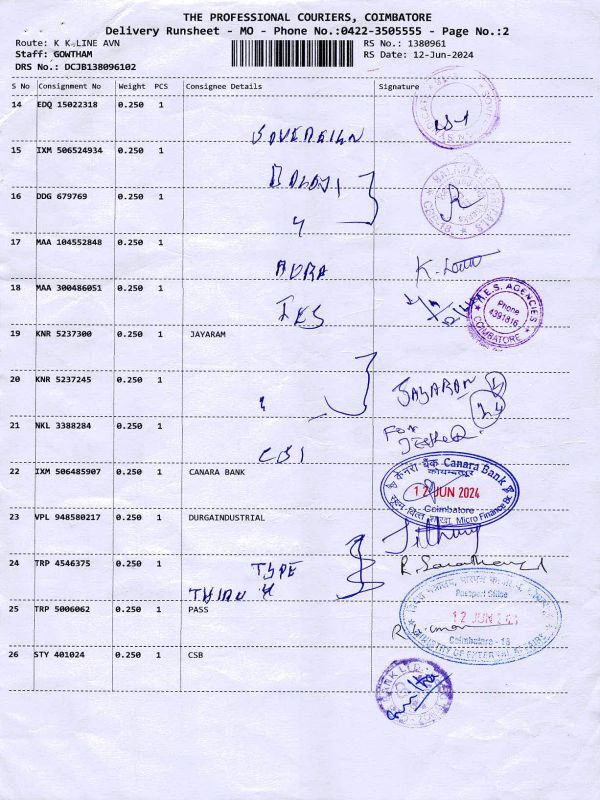 THE PROFESSIONAL COURIERS, COIMBATORE
Delivery Runsheet - MO - Phone No.:0422-3505555 - Page No.:2
Route: K K LINE AVN RS No.: 1380961
Staff: GOWTHAM RS Date: 12-Jun-2024
DRS No.: DCJB138096102
S No Consignment No Weight PCS Consignee Details Signature
14 EDQ 15022318 0.250 1
SOVEREIGN
15 IXM 506524934 0.250 1
BALAJI
16 DDG 679769 0.250 1
17 MAA 104552848 0.250 1
AURA
18 MAA 300486051 0.250 1
A.E.S. AGENCIES
Phone
4391816
COIMBATORE
19 KNR 5237300 0.250 1 JAYARAM
20 KNR 5237245 0.250 1
JAYARAM
21 NKL 3388284 0.250 1
For
CBI
22 IXM 506485907 0.250 1 CANARA BANK
केनरा बैंक Canara Bank
12 JUN 2024
Coimbatore
Micro Finance
23 VPL 948580217 0.250 1 DURGAINDUSTRIAL
24 TRP 4546375 0.250 1
TYPE
25 TRP 5006062 0.250 1 PASS
12 JUN
Coimbatore - 18
MINISTRY OF EXTERNAL AFFAIRS
26 STY 401024 0.250 1 CSB